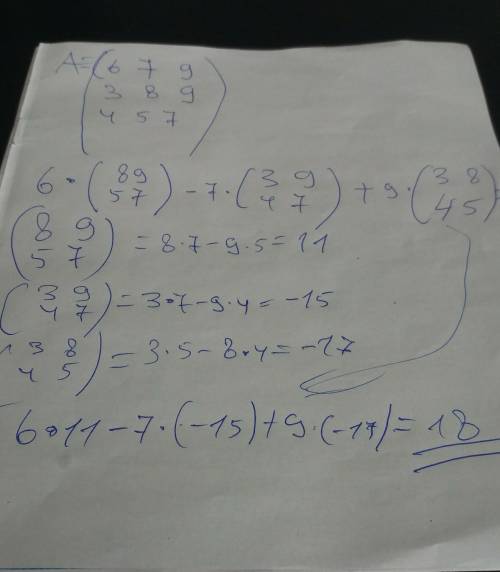 A=(6 7 9
3 8 9
4 5 7)
6·(8 9 5 7) - 7·(3 9 4 7) + 9·(3 8 4 5)=
(8 9 5 7) = 8·7-9·5=11
(3 9 4 7) = 3·7-9·4=-15
(3 8 4 5) = 3·5-8·4=-17
6·11-7·(-15)+9·(-17)=18